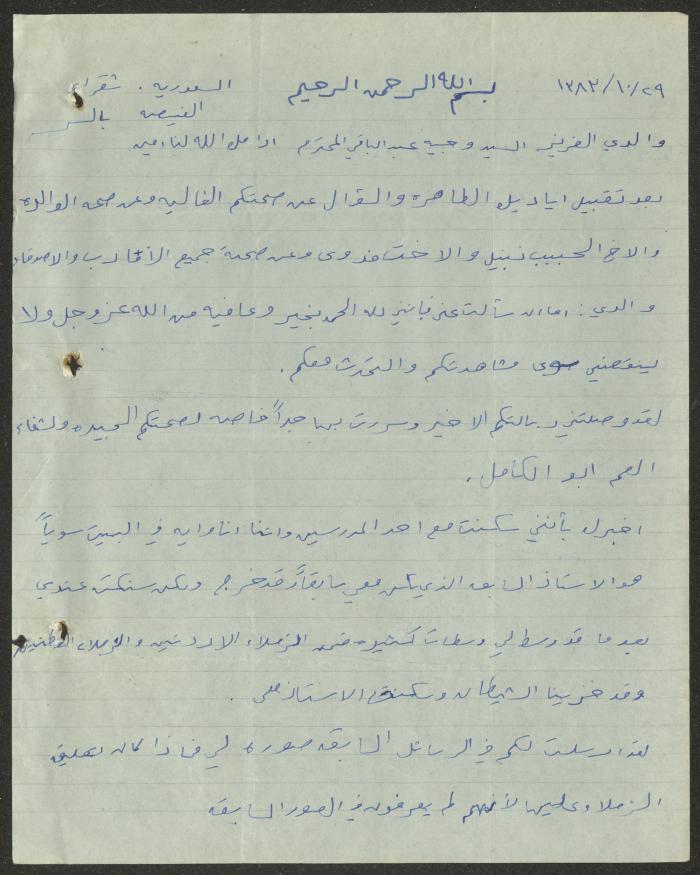 ١٣٨٣/١٠/٢٩ بسم الله الرحمن الرحيم السعوديه . شقراء
القيصه بالسر
والدي العزيز السيد وجيه عبد الباقي المحترم ادامك الله لنا امين
بعد تقبيل اياديك الطاهره والسؤال عن صحتكم الغاليه وعن صحه الوالده
والاخ الحبيب نبيل والاخت فدوى وعن صحة جميع الأقارب والاصدقاء
والدي : اما ان سألت عني فإنني لله الحمد بخير وعافيه من الله عز وجل ولا
ينقصني سوى مشاهدتكم والتحدث معكم .
لقد وصلتني رسالتكم الاخير وسررت بها جداً خاصه لصحتكم الجيده ولشفاء
العم ابو الكامل .
اخبرك بأنني سكنت مع احد المدرسين واننا انا واياه في البيت سوياً
هو الاستاذ السابق الذي سكن معي سابقاً قد خرج وسكن عندي
بعد ما قد وسط لي وسطات كثيره ضمن الزملاء الاردنيين والزملاء
وقد خزينا الشيطان وسكنت الاستاذ
لقد ارسلت لكم في الرسائل السابقه صوره لي فماذا كان تعليق
الزملاء عليها لأنهم لم يعرفوني في الصور السابقه